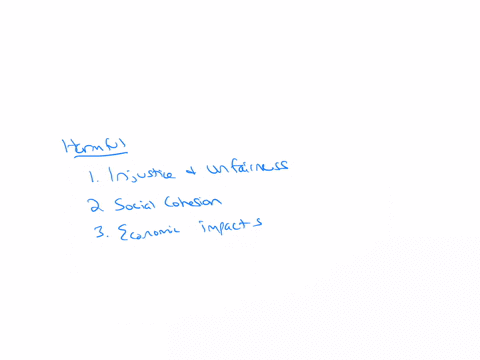 Harmful
1. Injustice & unfairness
2 Social Cohesion
3. Economic impacts